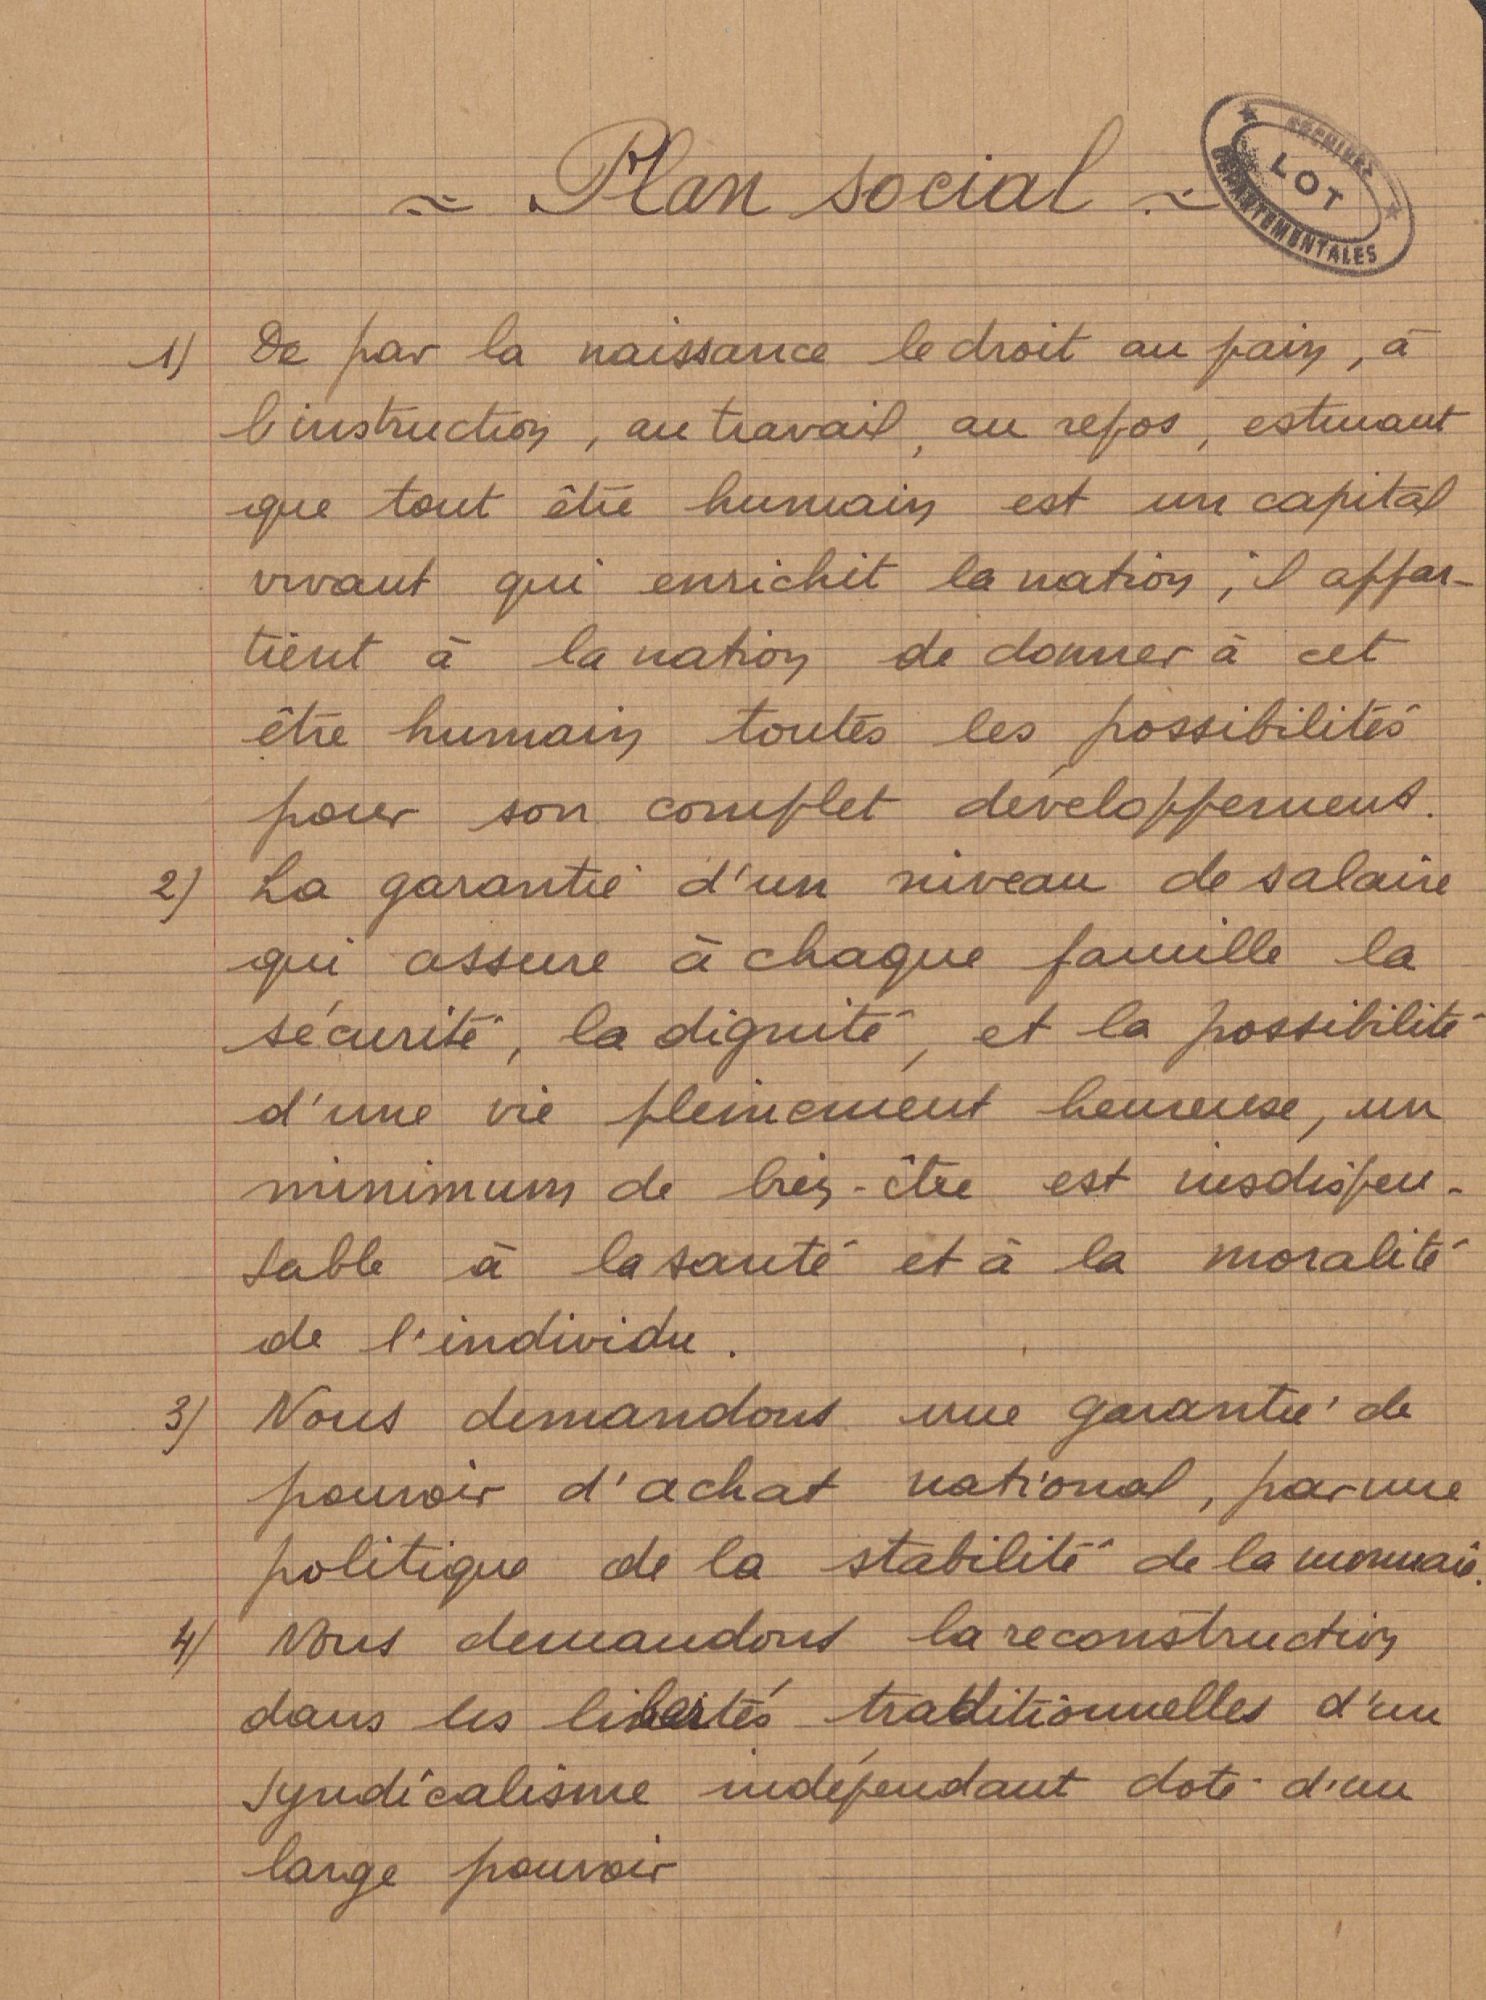 ~ Plan social ~
ARCHIVES
LOT
DÉPARTEMENTALES
1) De par la naissance le droit au pain, à
l'instruction, au travail, au repos, estimant
que tout être humain est un capital
vivant qui enrichit la nation, il appar-
tient à la nation de donner à cet
être humain toutes les possibilités
pour son complet développement.
2) La garantie d'un niveau de salaire
qui assure à chaque famille la
sécurité, la dignité, et la possibilité
d'une vie pleinement heureuse, un
minimum de bien-être est insdispen-
sable à la santé et à la moralité
de l'individu.
3) Nous demandons une garantie de
pouvoir d'achat national, par une
politique de la stabilité de la monnaie.
4) Nous demandons la reconstruction
dans les libertés traditionnelles d'un
syndicalisme indépendant doté d'un
large pouvoir